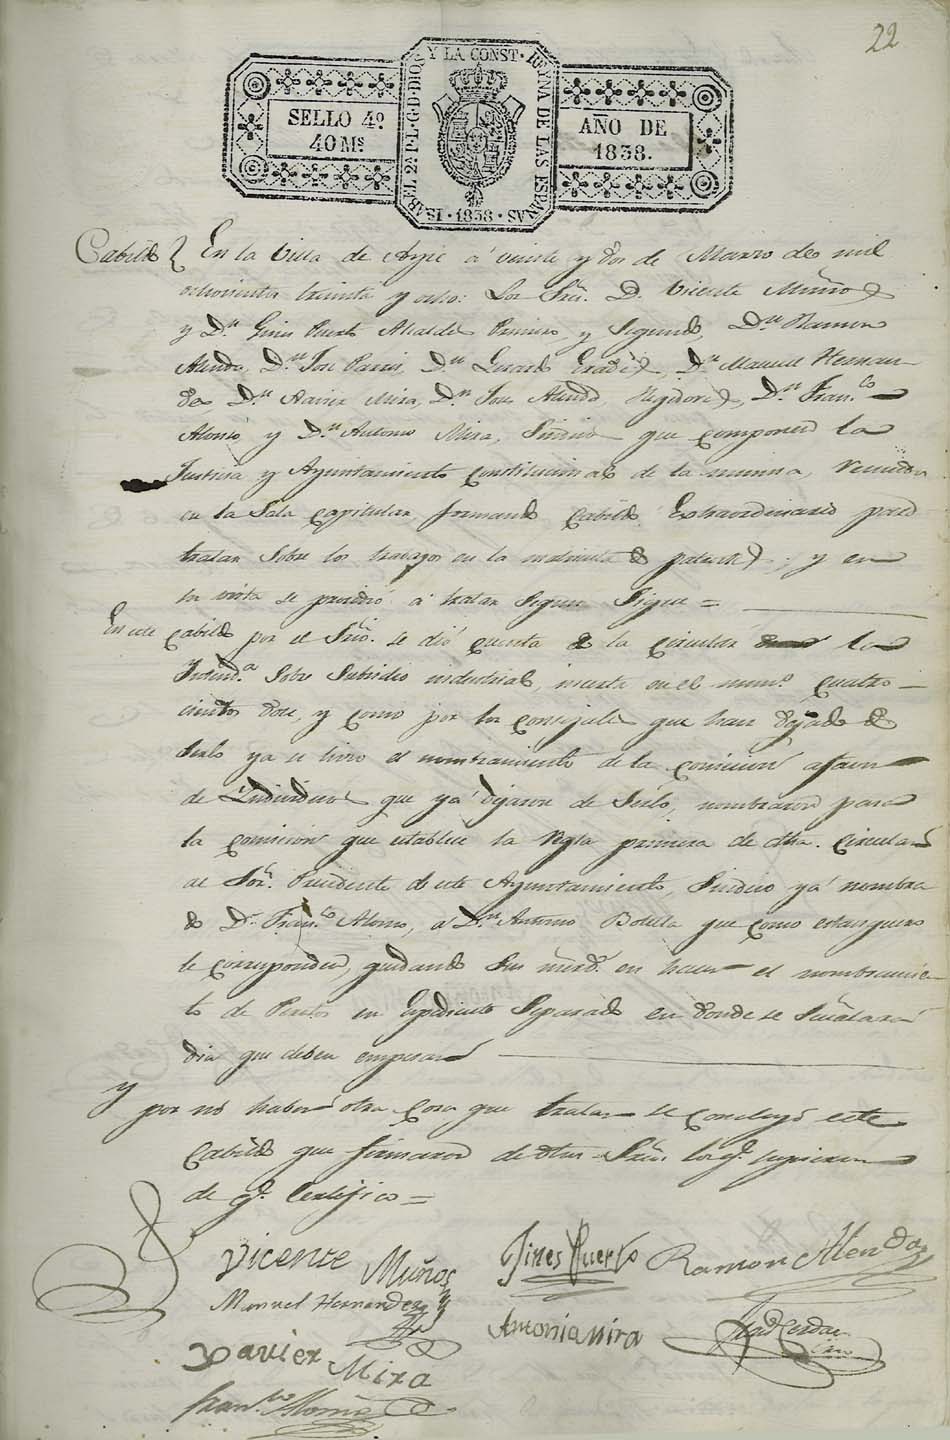 22
SELLO 4º
40 Ms
ISABEL 2ª P.L.G.D DIOS Y LA CONST. REYNA DE LAS ESPAÑAS
1838
AÑO DE
1838.
Cabildo En la Villa de Aspe á veinte y dos de Marzo de mil
ochocientos treinta y ocho: Los Srs. D. Vicente Muños
y Dn Gines Puerto Alcaldes Primero, y Segundo, Dn Ramon
Alenda, Dn Jose Dn Gerardo Dn Manuel Hernan
des Dn Xavier Mira, Dn Jose Alenda, Regidores, Dn Franco
Alonso y Dn Antonio Mira, Sindico que componen la
Justicia y Ayuntamiento constitucional de la misma, reunidos
en la Sala capitular formando Cabildo Extraordinario para
tratar sobre los trabajos en la matricula de patentes; y en
su vista se procedió á tratar segun sigue =
En este Cabildo por el Srio. se dió cuenta de la circular de la
Intenda sobre Subsidio industrial, inserta en el numº cuatro
cientos doce, y como por los consejales que han dejado de
serlo ya se hizo el nombramiento de la comision
de Individuos que ya dejaron de serlo, nombraron para
la comision que establece la regla primera de dha. circular
al Sor. Presidente de este Ayuntamiento, Sindico ya nombra
do Dn Franco Alonso, á Dn Antonio Botella que como estanquero
le corresponde, quedando sus mrds. en hacer el nombramien
to de Peritos en Expediente separado en donde se señalará
dia que deben empesar
y por no haber otra cosa que tratar se concluyó este
Cabildo que firmaron de dhos Srs. los q. supieron
de q. Certifico =
Vicente Muños
Gines Puerto
Ramon Alenda
Manuel Hernandez
Antonio Mira
Xavier Mira
Franco Alonso